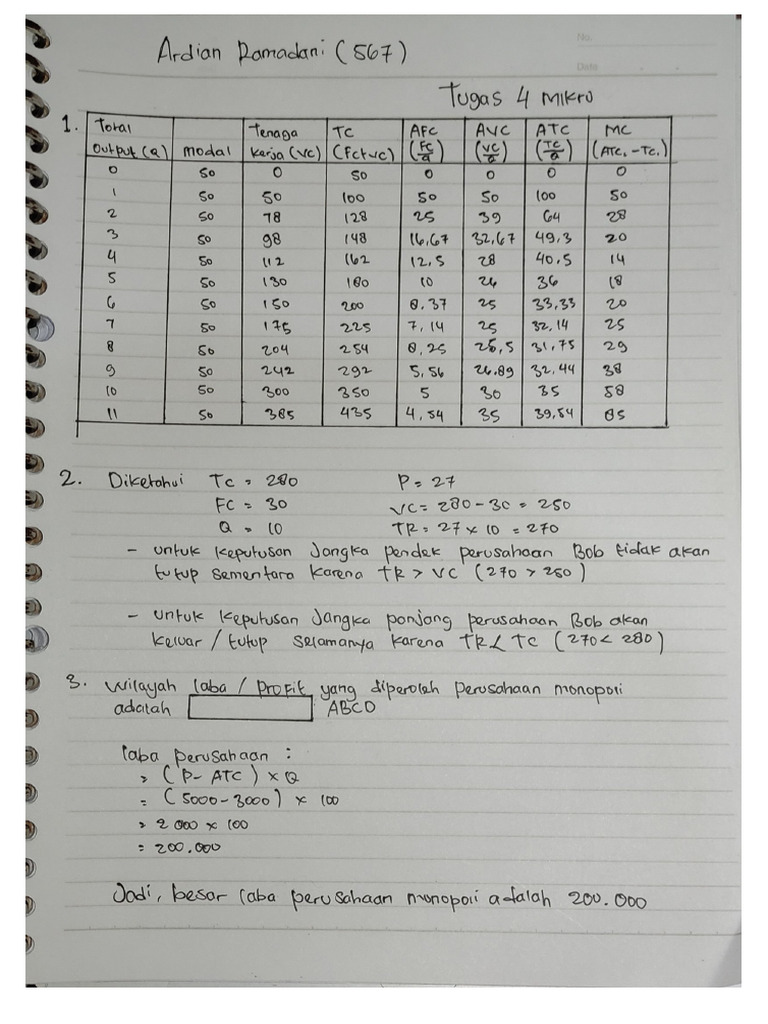 No.
Date
Ardian Ramadani (567)
Tugas 4 Mikro
1. Total Output (Q) | Modal | Tenaga Kerja (VC) | TC (FC+VC) | AFC (FC/Q) | AVC (VC/Q) | ATC (TC/Q) | MC (ATC₁ - TC₁)
0 50 0 50 0 0 0 0
1 50 50 100 50 50 100 50
2 50 78 128 25 39 64 28
3 50 98 148 16,67 32,67 49,3 20
4 50 112 162 12,5 28 40,5 14
5 50 130 180 10 26 36 18
6 50 150 200 8,37 25 33,33 20
7 50 175 225 7,14 25 32,14 25
8 50 204 254 8,25 25,5 31,75 29
9 50 242 292 5,56 26,89 32,44 38
10 50 300 350 5 30 35 58
11 50 385 435 4,54 35 39,54 85
2. Diketahui TC = 280 P = 27
FC = 30 VC = 280 - 30 = 250
Q = 10 TR = 27 × 10 = 270
- untuk keputusan Jangka pendek perusahaan Bob tidak akan
tutup sementara karena TR > VC (270 > 250)
- untuk keputusan Jangka panjang perusahaan Bob akan
keluar / tutup selamanya karena TR < TC (270 < 280)
3. Wilayah laba / profit yang diperoleh perusahaan monopoli
adalah ABCD
laba perusahaan :
= (P - ATC) × Q
= (5000 - 3000) × 100
= 2000 × 100
= 200.000
Jadi, besar laba perusahaan monopoli adalah 200.000